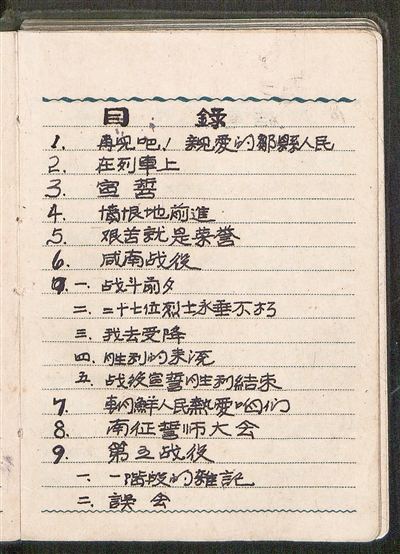 目 錄
1. 再见吧！親愛的鄒縣人民
2. 在列車上
3. 宣誓
4. 憤恨地前進
5. 艰苦就是荣誉
6. 咸南战役
一. 战斗前夕
二. 二十七位烈士永垂不朽
三. 我去受降
四. 胜利的来源
五. 战役宣誓胜利結束
7. 朝鮮人民熱愛咱们
8. 南征誓师大会
9. 第五战役
一. 一階段的雜記
二. 誤会